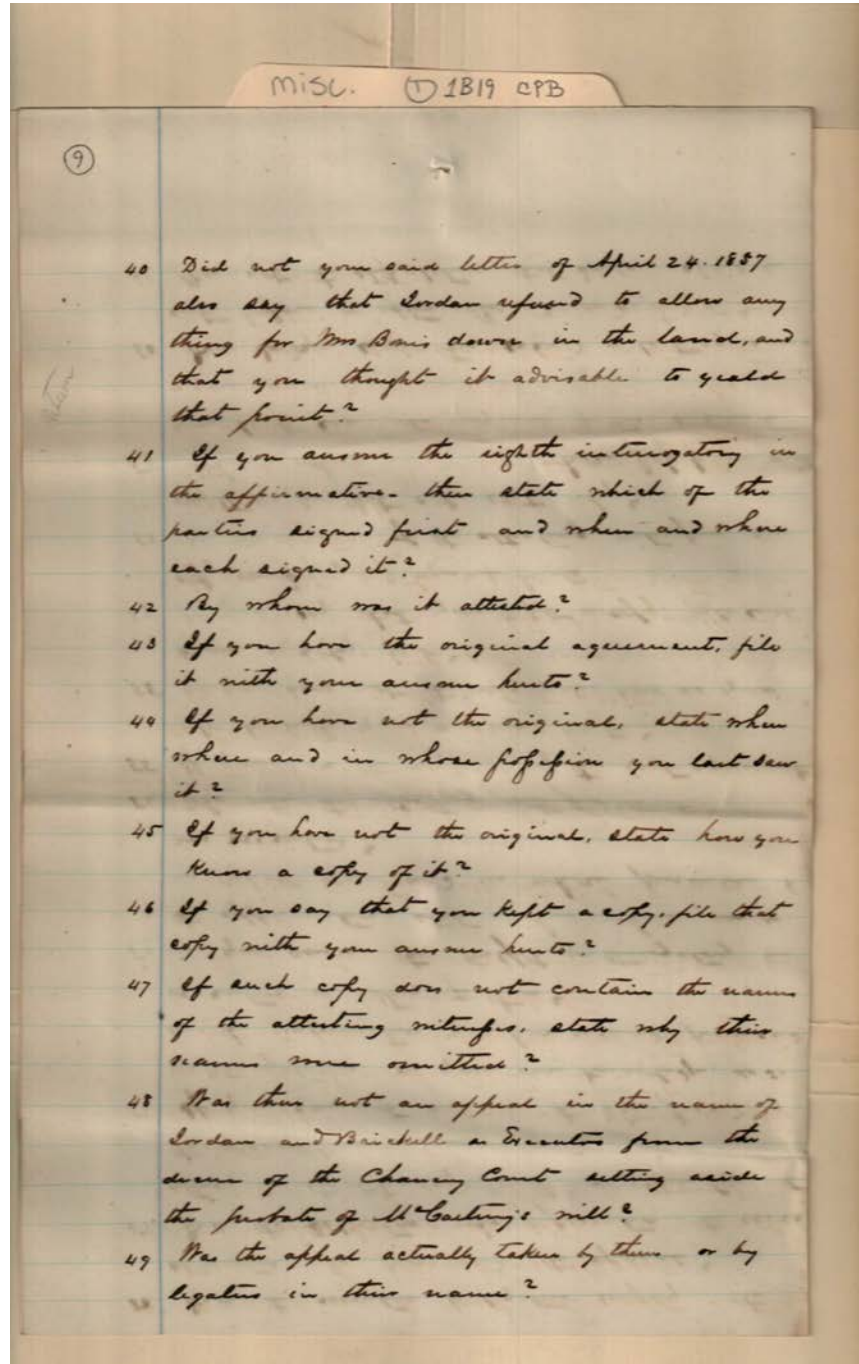 misc. ① 1B19 CPB
⑨
40 Did not your said letter of April 24. 1887
also say that Jordan refused to allow any
thing for Mrs Bonis dower in the land, and
that you thought it advisable to yeald
that point?
41 If you answer the eighth interrogatory in
the affirmative. then state which of the
parties signed first and when and where
each signed it?
42 By whom was it attested?
43 If you have the original agreement, file
it with your answer hereto?
44 If you have not the original, state when
where and in whose possession you last saw
it?
45 If you have not the original, state how you
know a copy of it?
46 If you say that you kept a copy, file that
copy with your answer hereto?
47 If such copy does not contain the names
of the attesting witnesses, state why their
names were omitted?
48 Was there not an appeal in the name of
Jordan and Brickell as Executors from the
decree of the Chancery Court setting aside
the probate of will?
49 Was the appeal actually taken by them or by
legatees in their name?